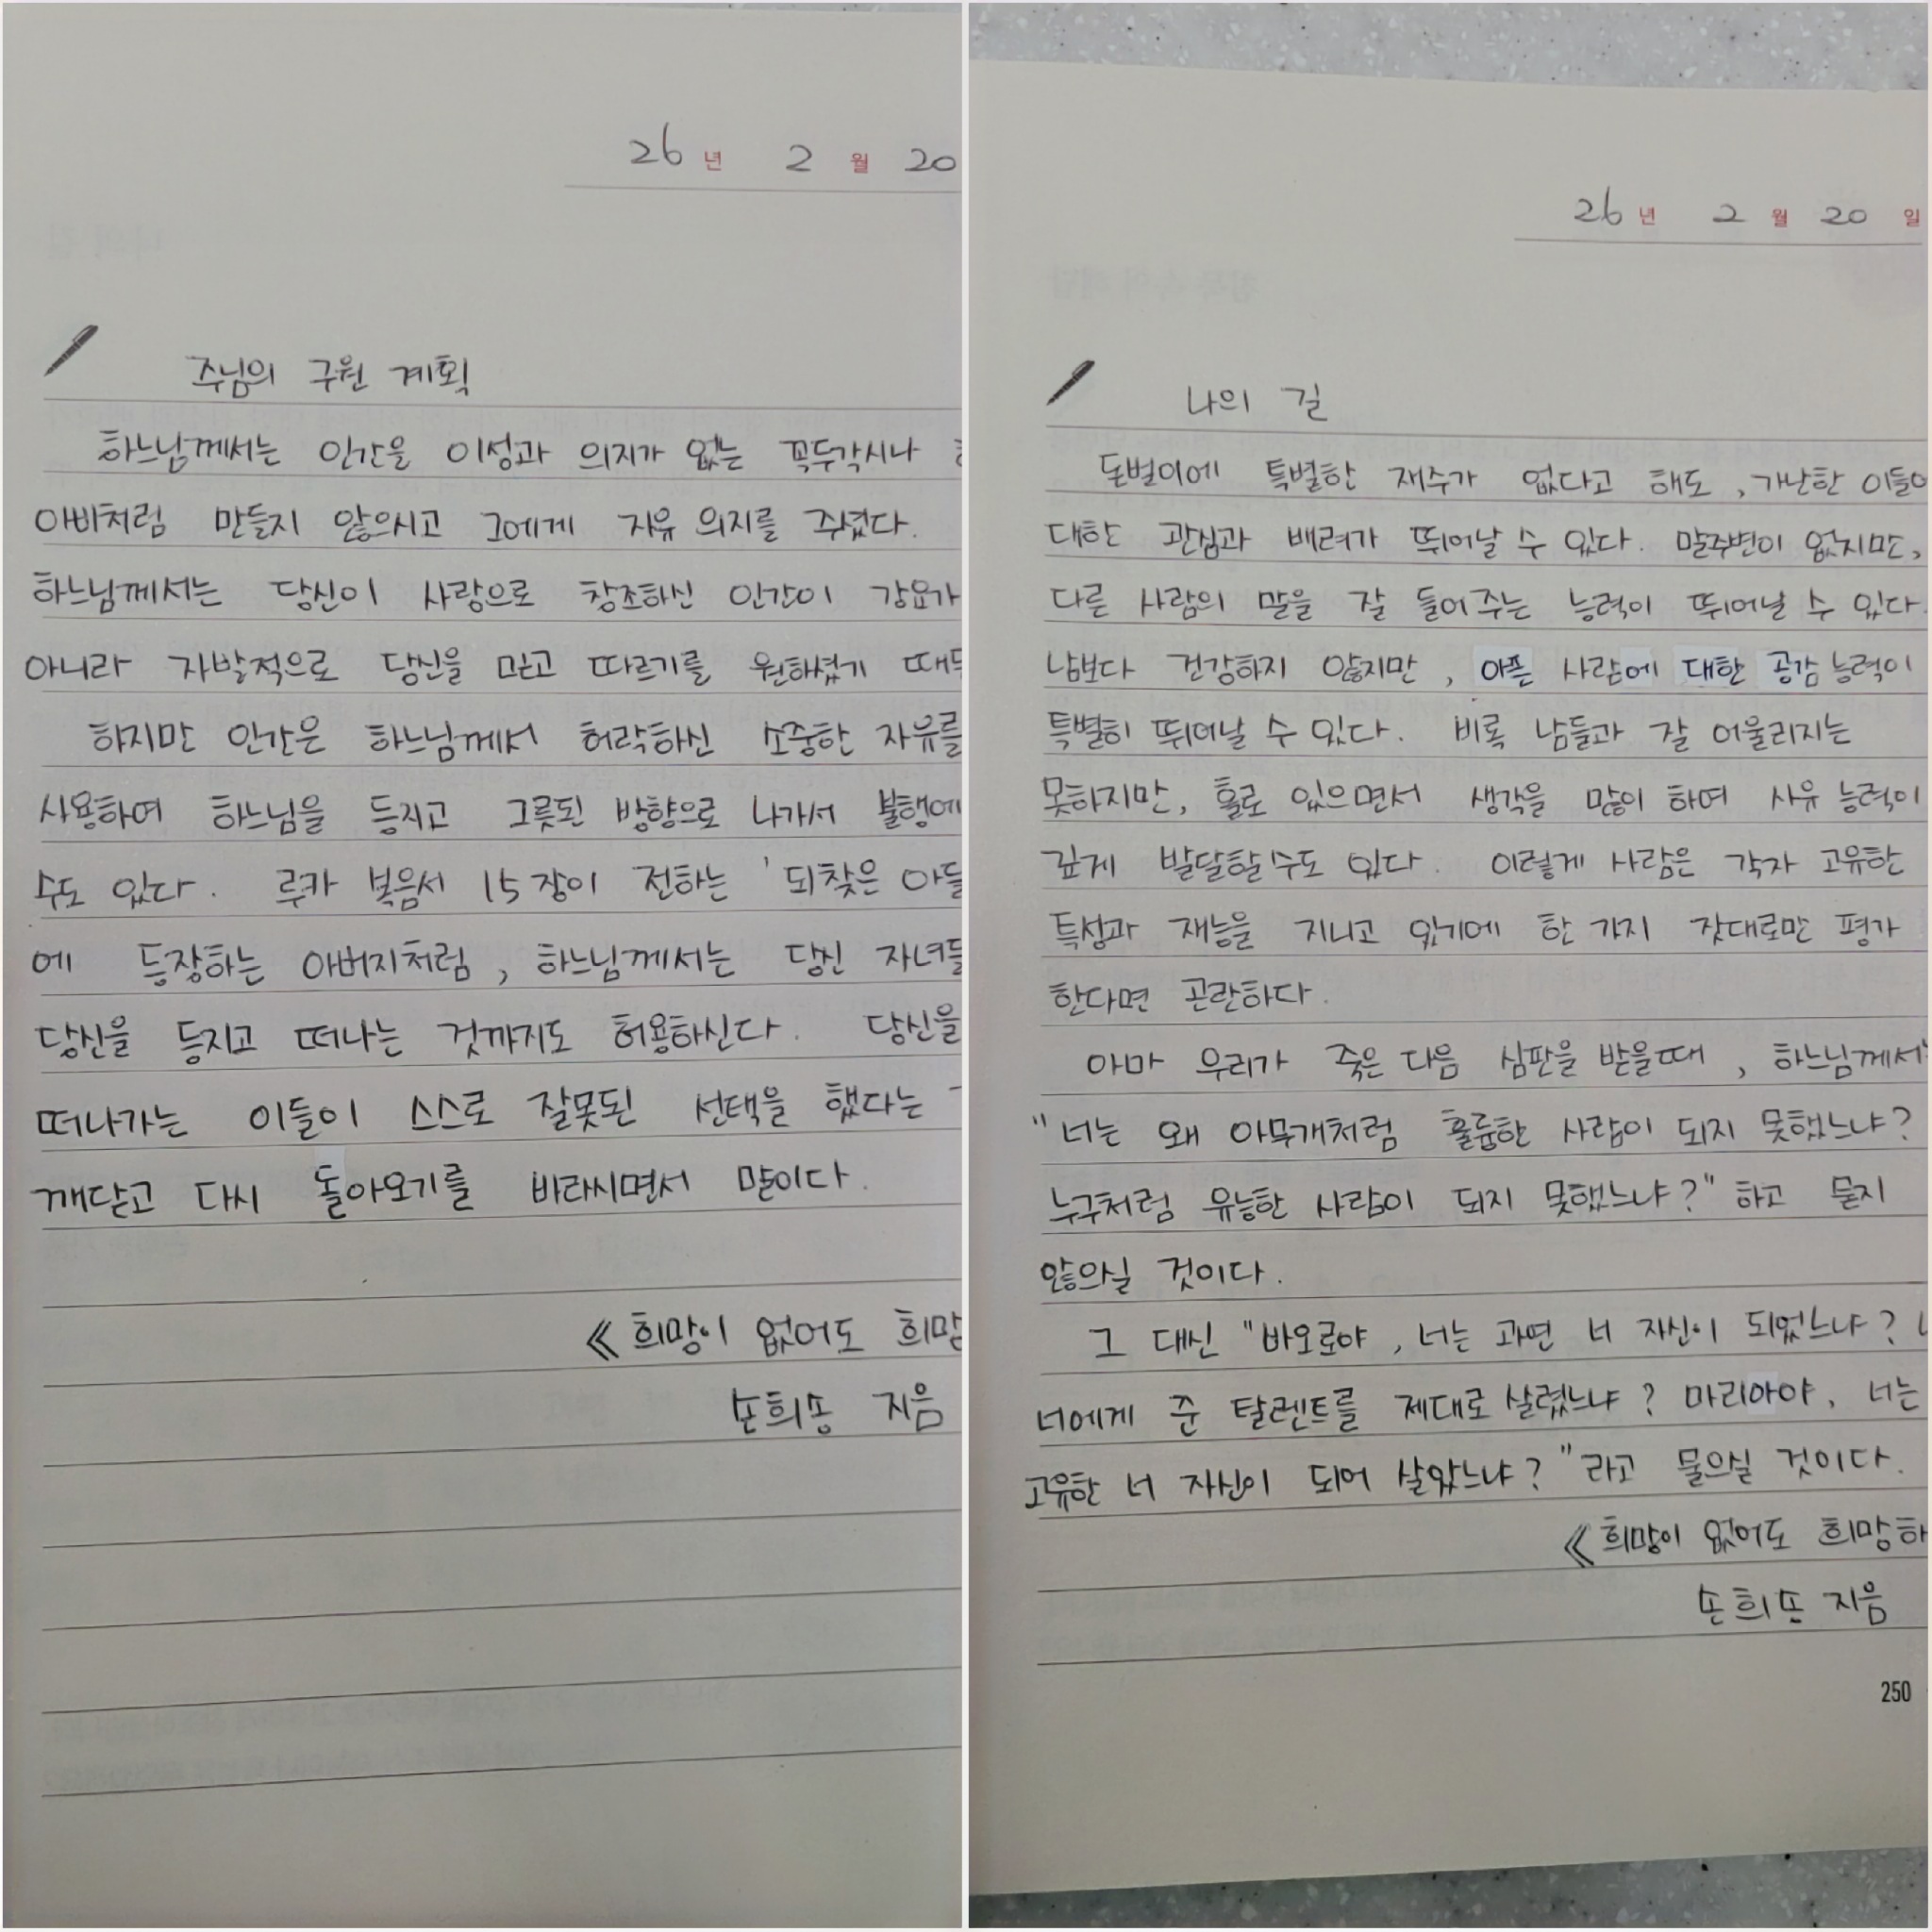 26년 2월 20
주님의 구원 계획
하느님께서는 인간을 이성과 의지가 없는 꼭두각시나
아비처럼 만들지 않으시고 그에게 자유 의지를 주셨다.
하느님께서는 당신이 사랑으로 창조하신 인간이 강요가
아니라 자발적으로 당신을 믿고 따르기를 원하셨기
하지만 인간은 하느님께서 허락하신 소중한 자유를
사용하여 하느님을 등지고 그릇된 방향으로 나가서 불행에
수도 있다. 루카 복음서 15장이 전하는 '되찾은 아들
에 등장하는 아버지처럼, 하느님께서는 당신 자녀들
당신을 등지고 떠나는 것까지도 허용하신다. 당신을
떠나가는 이들이 스스로 잘못된 선택을 했다는
깨닫고 다시 돌아오기를 바라시면서 말이다.
《희망이 없어도 희망
손희송 지음
26년 2월 20일
나의 길
돈벌이에 특별한 재수가 없다고 해도, 가난한 이들에
대한 관심과 배려가 뛰어날 수 있다. 말주변이 없지만,
다른 사람의 말을 잘 들어주는 능력이 뛰어날 수 있다.
남보다 건강하지 않지만, 아픈 사람에 대한 공감 능력이
특별히 뛰어날 수 있다. 비록 남들과 잘 어울리지는
못하지만, 홀로 있으면서 생각을 많이 하며 사유 능력이
깊게 발달할수도 있다. 이렇게 사람은 각자 고유한
특성과 재능을 지니고 있기에 한 가지 잣대로만 평가
한다면 곤란하다.
아마 우리가 죽은 다음 심판을 받을때, 하느님께서
"너는 왜 아무개처럼 훌륭한 사람이 되지 못했느냐?
누구처럼 유능한 사람이 되지 못했느냐?" 하고 묻지
않으실 것이다.
그 대신 "바오로야, 너는 과연 너 자신이 되었느냐?
너에게 준 탈렌트를 제대로 살렸느냐? 마리아야, 너는
고유한 너 자신이 되어 살았느냐?"라고 물으실 것이다.
《희망이 없어도 희망하
손희송 지음
250